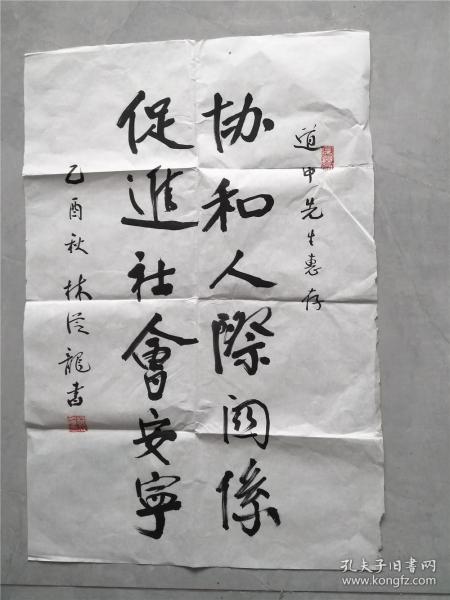 道中先生惠存
协和人際関係
促進社會安寧
乙酉秋 林從龍書
孔夫子旧书网
www.kongfz.com